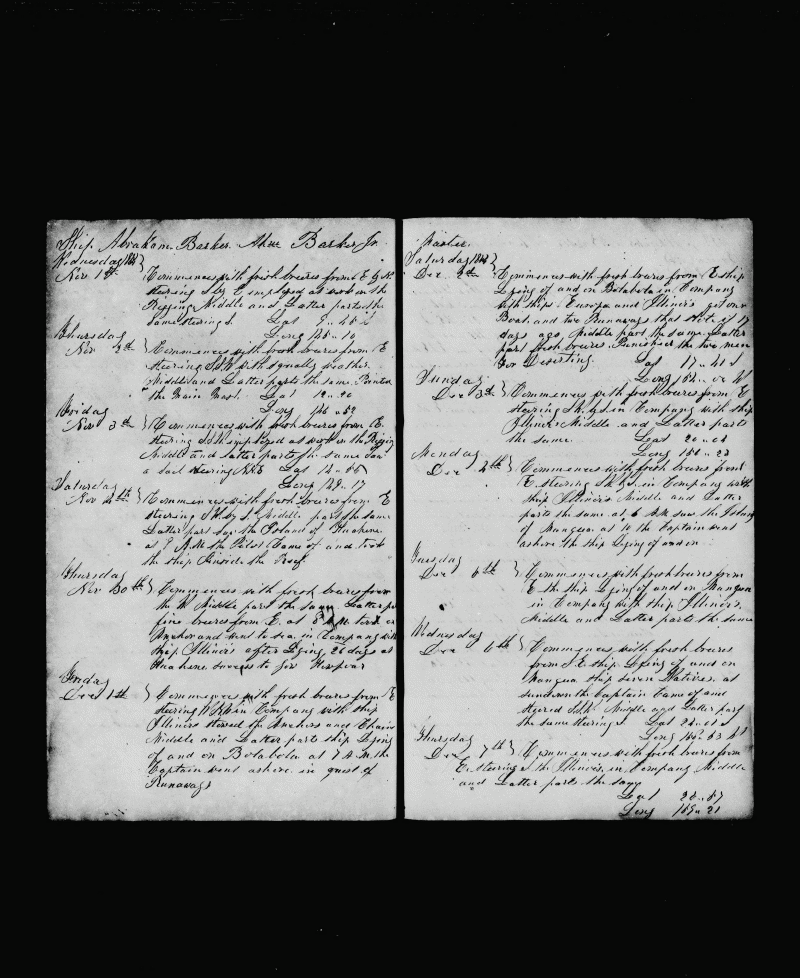 Ship Abraham Barker Abm Barker Jr
Wednesday
Nov 1st Commences with fresh breezes from E by N
steering S by E employed at work in the
Rigging Middle and Latter parts the
same steering S. Lat
Long
Thursday
Nov 2d Commences with fresh breezes from E
steering with squally weather.
Middle and Latter parts the same. Painted
the Main Mast. Lat 12 .. 20
Long 146 .. 52
Friday
Nov 3d Commences with fresh breezes from E.
steering employed at work in the Rigging
Middle and Latter parts the same Saw
a sail steering Lat
Long 149 .. 17
Saturday
Nov 4th Commences with fresh breezes from E
steering Middle part the same
Latter part saw the Island of Huahine
at A.M the Pilot Came of and took
the ship Inside the Reef
Thursday
Nov 30th Commences with fresh breezes from
the Middle part the same Latter
fine breezes from E. at A.M took
Anchor and went to sea, in Company with
ship Illinois after Lying 26 days at
Huahine
Friday
Dec 1th Commences with fresh breezes from E
steering in Company with ship
Illinois stowed the Anchors and Chains
Middle and Latter parts ship Lying
of and on Bolabola at 7 A.M. the
Captain went ashore in quest of
Runaways
Master
Saturday
Dec 2d Commences with fresh breezes from E ship
Lying of and on Bolabola in Company
with ships Europa and Illinois got our
Boat and two Runaways that stole it 17
days ago Middle part the same Latter
part fresh breezes. Punished the two men
For Deserting. Lat 17 .. 41 S
Long W
Sunday
Dec 3th Commences with fresh breezes from E
steering in Company with ship
Illinois Middle and Latter parts
the same. Lat 20 ..
Long
Monday
Dec 4th Commences with fresh breezes from
E steering in Company with
ship Illinois Middle and Latter
parts the same at 6 A.M saw the Island
of Mangea at 10 the Captain went
ashore the ship Lying of and on
Tuesday
Dec 5th Commences with fresh breezes from
E the ship Lying of and on Mangea
in Company with ship Illinois,
Middle and Latter parts the same
Wednesday
Dec 6th Commences with fresh breezes
from S.E ship Lying of and on
Mangea ship seven Natives, at
sundown the Captain Came of and
steered Middle and Latter part
the same steering Lat
Long
Thursday
Dec 7th Commences with fresh breezes from
E. steering the Illinois in Company Middle
and Latter parts the same
Lat
Long 159 .. 21